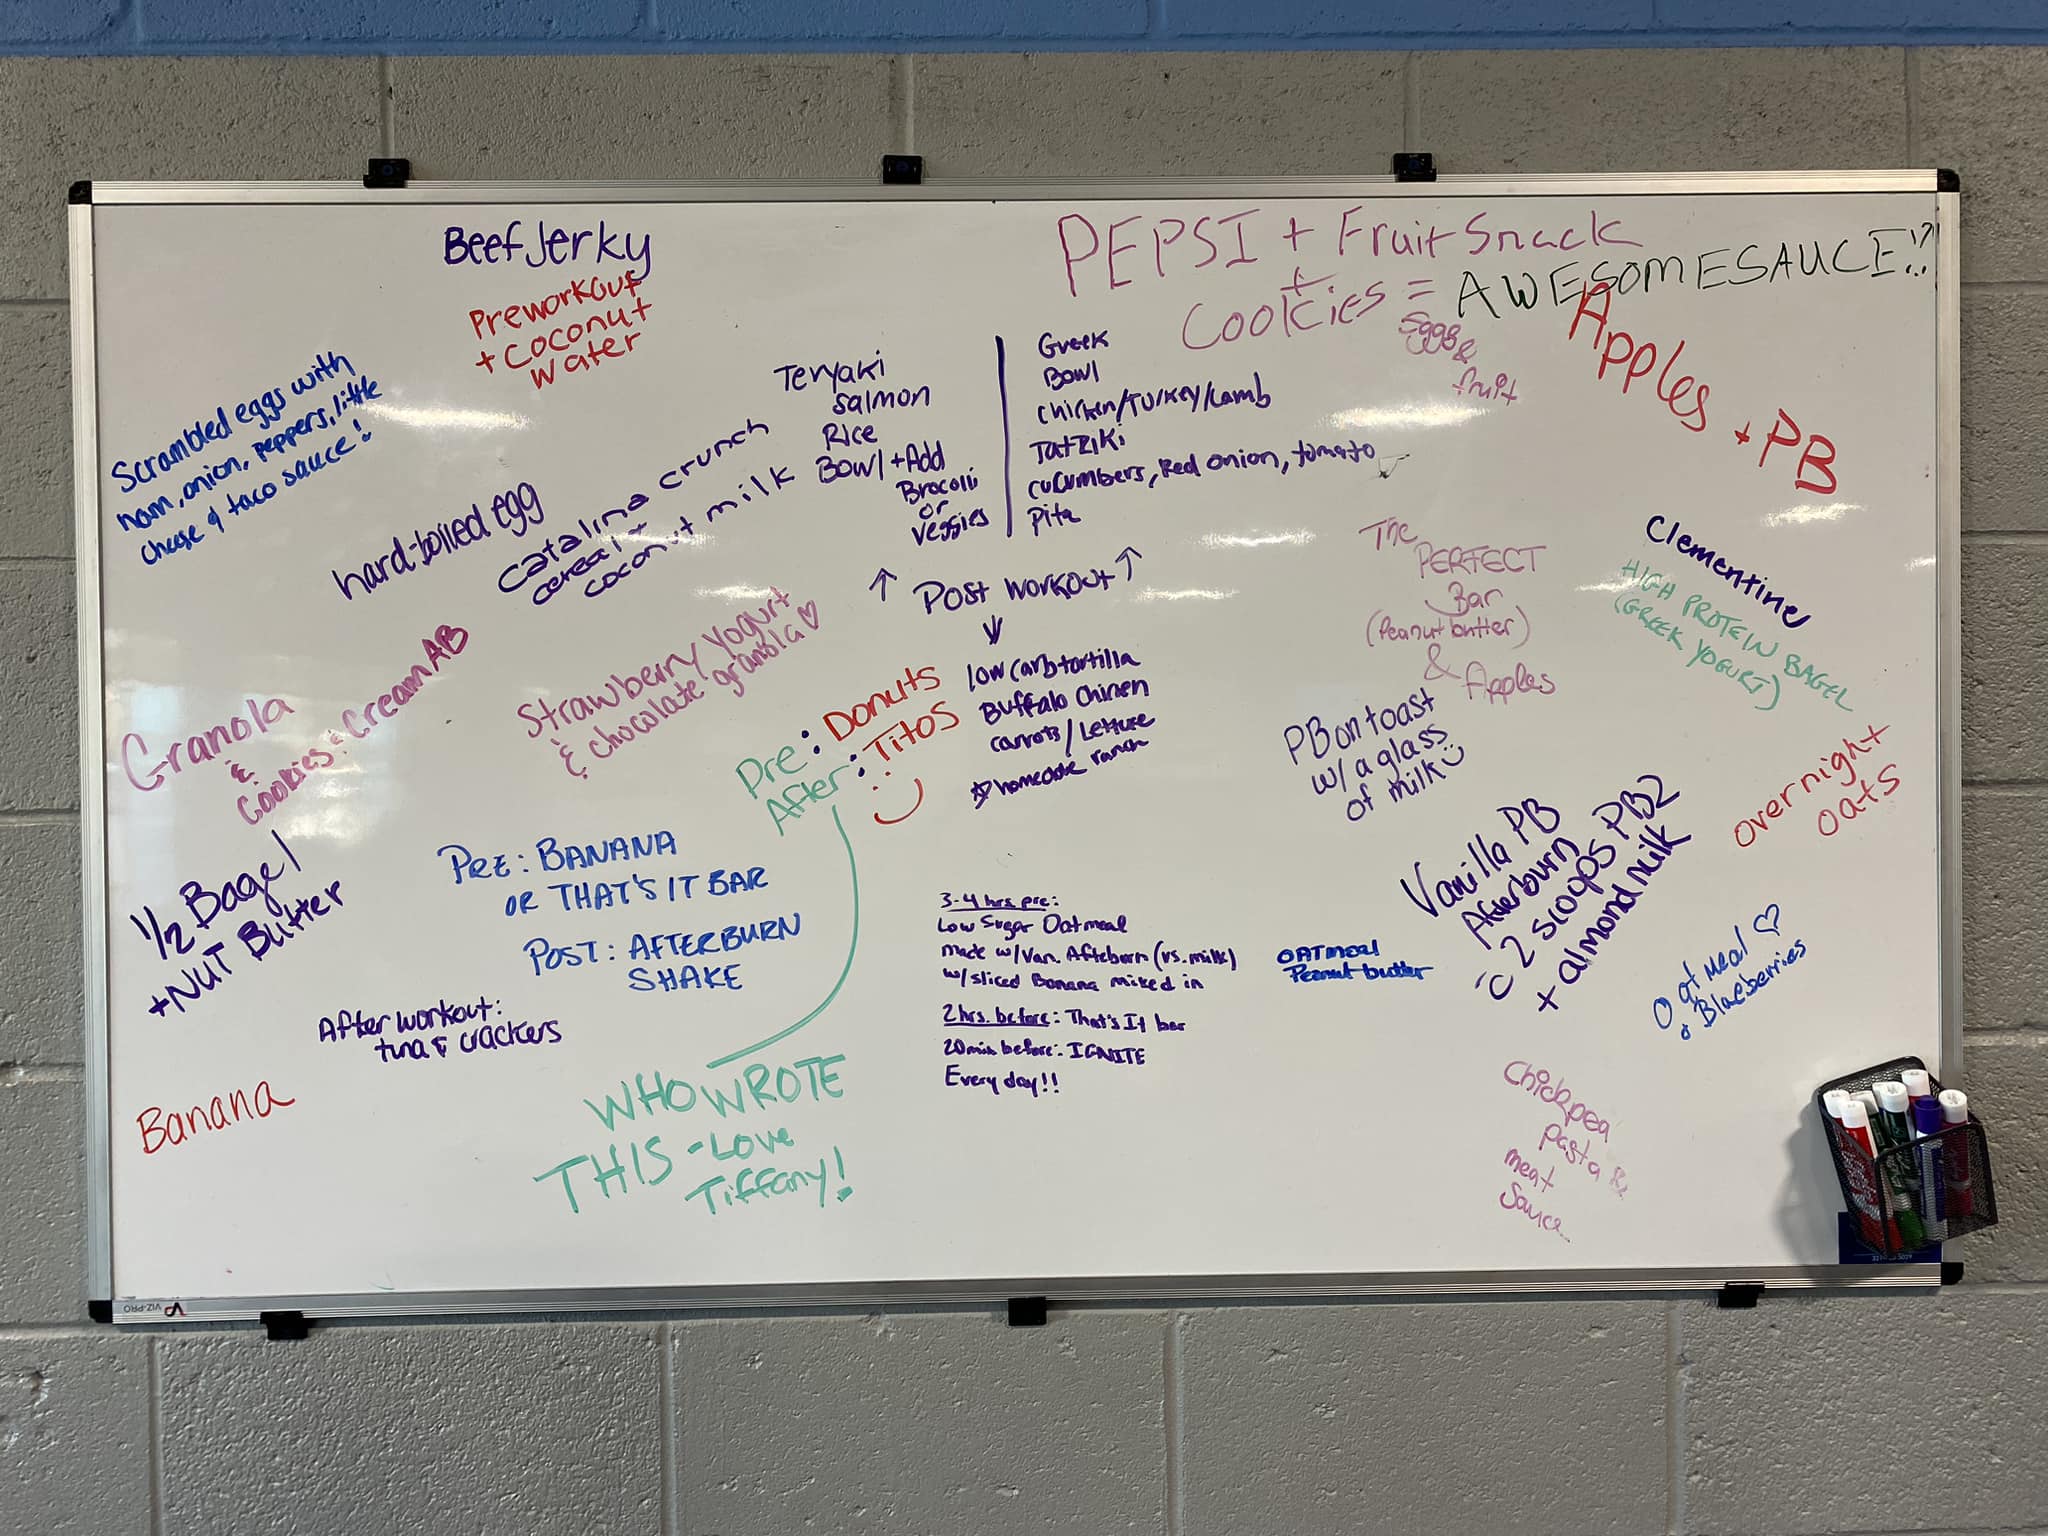 Beef Jerky
Preworkout
+ Coconut
Water
PEPSI + Fruit Snack
+
Cookies = AWESOMESAUCE!!
Eggs &
fruit
Apples + PB
Scrambled eggs with
ham, onion, peppers, little
cheese & taco sauce!
hard-boiled egg
catalina crunch
cereal +
coconut milk
Teryaki
Salmon
Rice
Bowl + Add
Brocolli
or
veggies
Greek
Bowl
chicken/Turkey/Lamb
Tatziki
cucumbers, Red onion, tomato
Pita
↑ Post workout ↑
↓
low carb tortilla
Buffalo Chicken
carrots / Lettuce
☆ homemade ranch
The
PERFECT
Bar
(Peanut butter)
& Apples
Clementine
HIGH PROTEIN BAGEL
(GREEK YOGURT)
Granola
&
Cookies & Cream AB
Strawberry Yogurt
& chocolate granola ♡
Pre: Donuts
After: Titos
:)
PB on toast
w/ a glass
of milk :)
overnight
oats
1/2 Bagel
+ NUT Butter
PRE: BANANA
OR THAT'S IT BAR
POST: AFTERBURN
SHAKE
3-4 hrs pre:
Low Sugar Oatmeal
made w/Van. Afteburn (vs. milk)
w/sliced Banana mixed in
2 hrs. before: That's It bar
20 min before: IGNITE
Every day!!
OATMEAL
Peanut butter
Vanilla PB
Afterburn
c 2 scoops PB2
+ almond milk
Oatmeal ♡
Blueberries
After workout:
tuna & crackers
Banana
WHO WROTE
THIS - Love
Tiffany!
Chickpea
Pasta &
meat
Sauce
VIZ-PRO